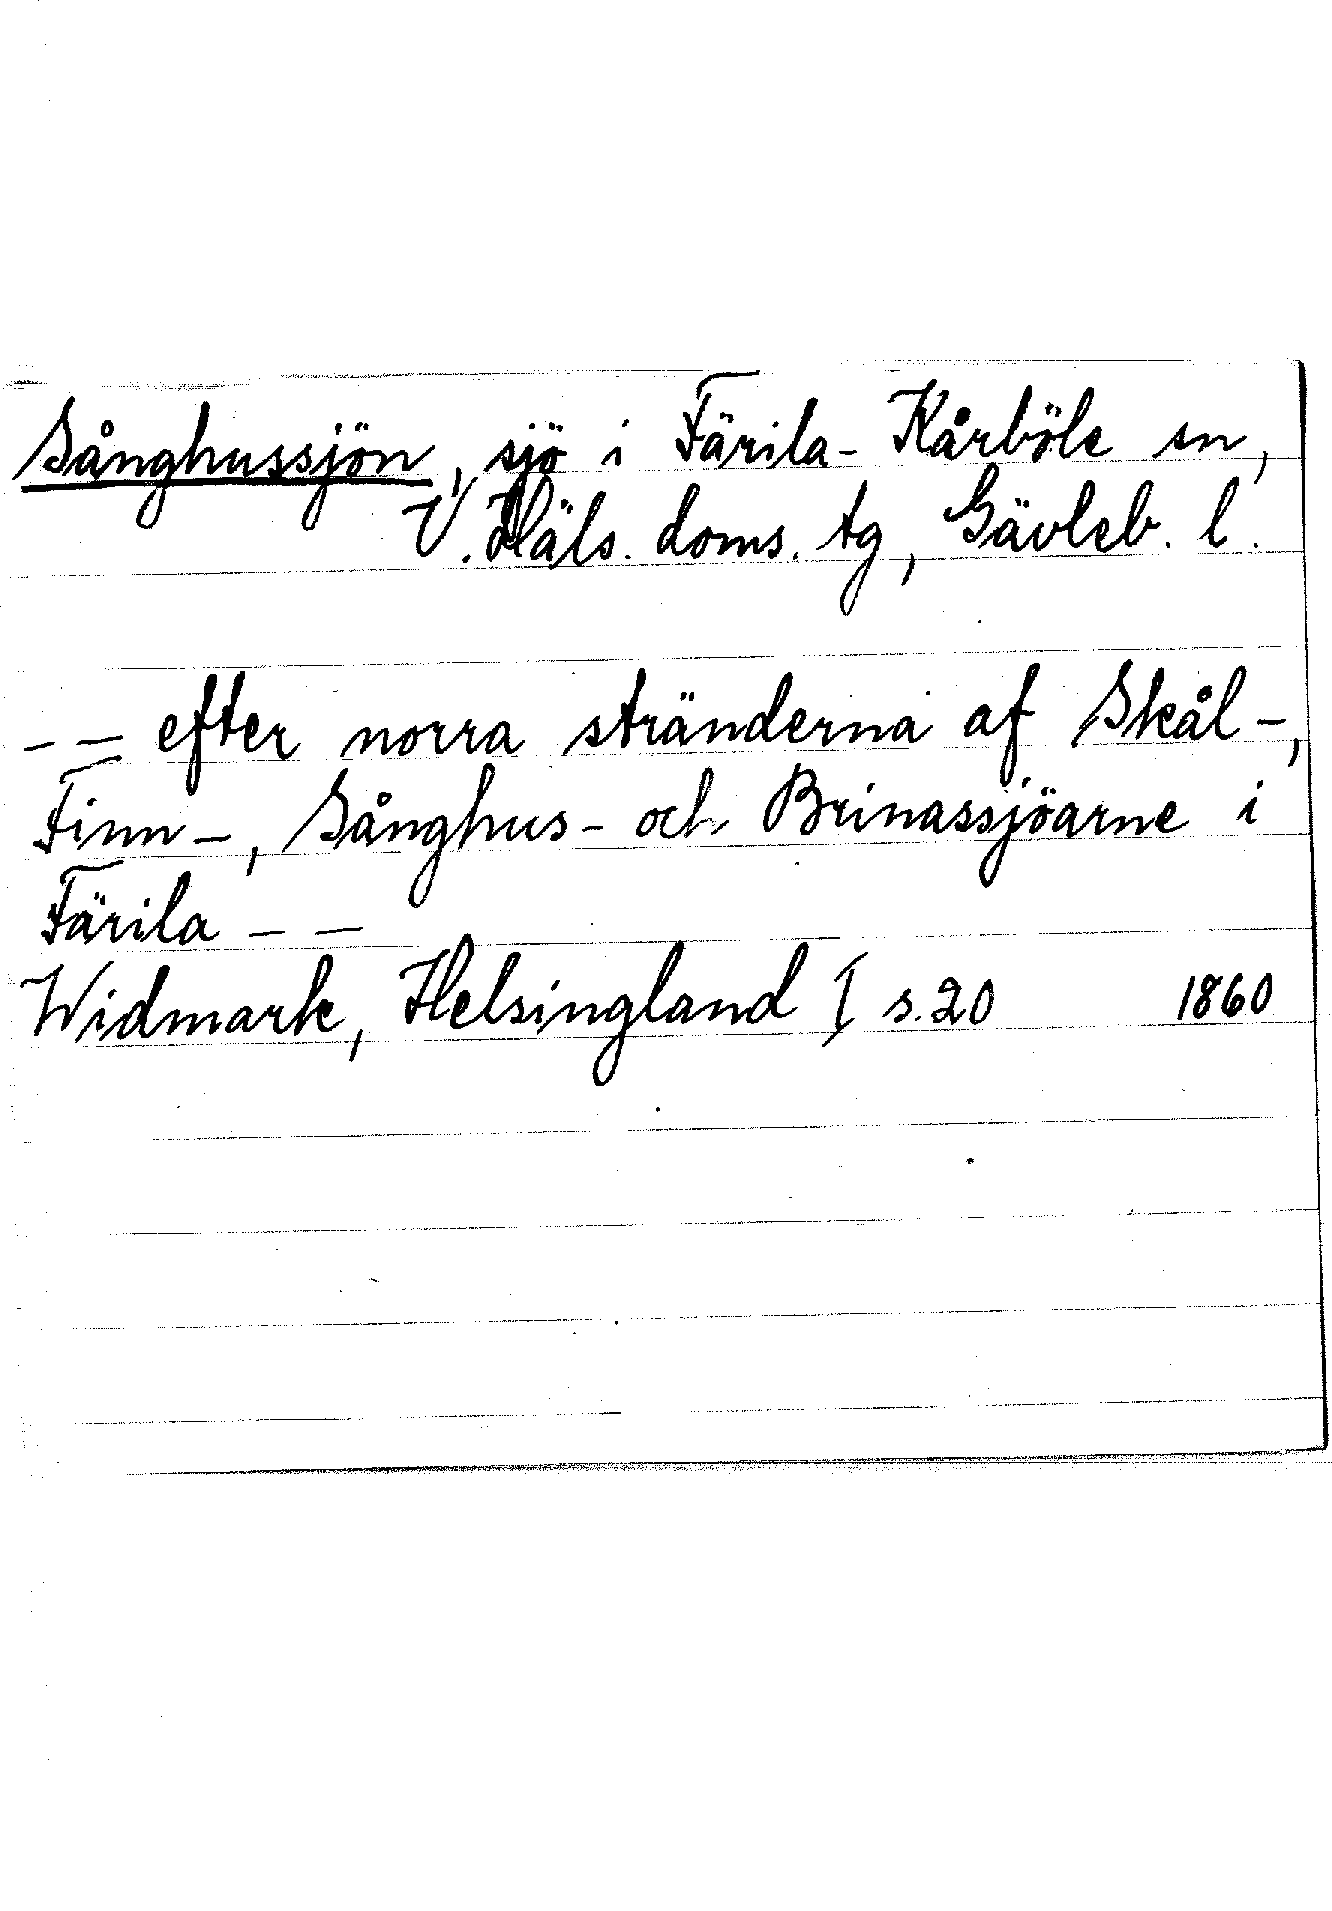 Sånghussjön, sjö i Färila-Kårböle sn,
V. Häls. doms. tg, Gävleb. l.
– – efter norra stränderna af Skål-,
Finn-, Sånghus- och Brinassjöarne i
Färila – –
Widmark, Helsingland I s. 20 1860